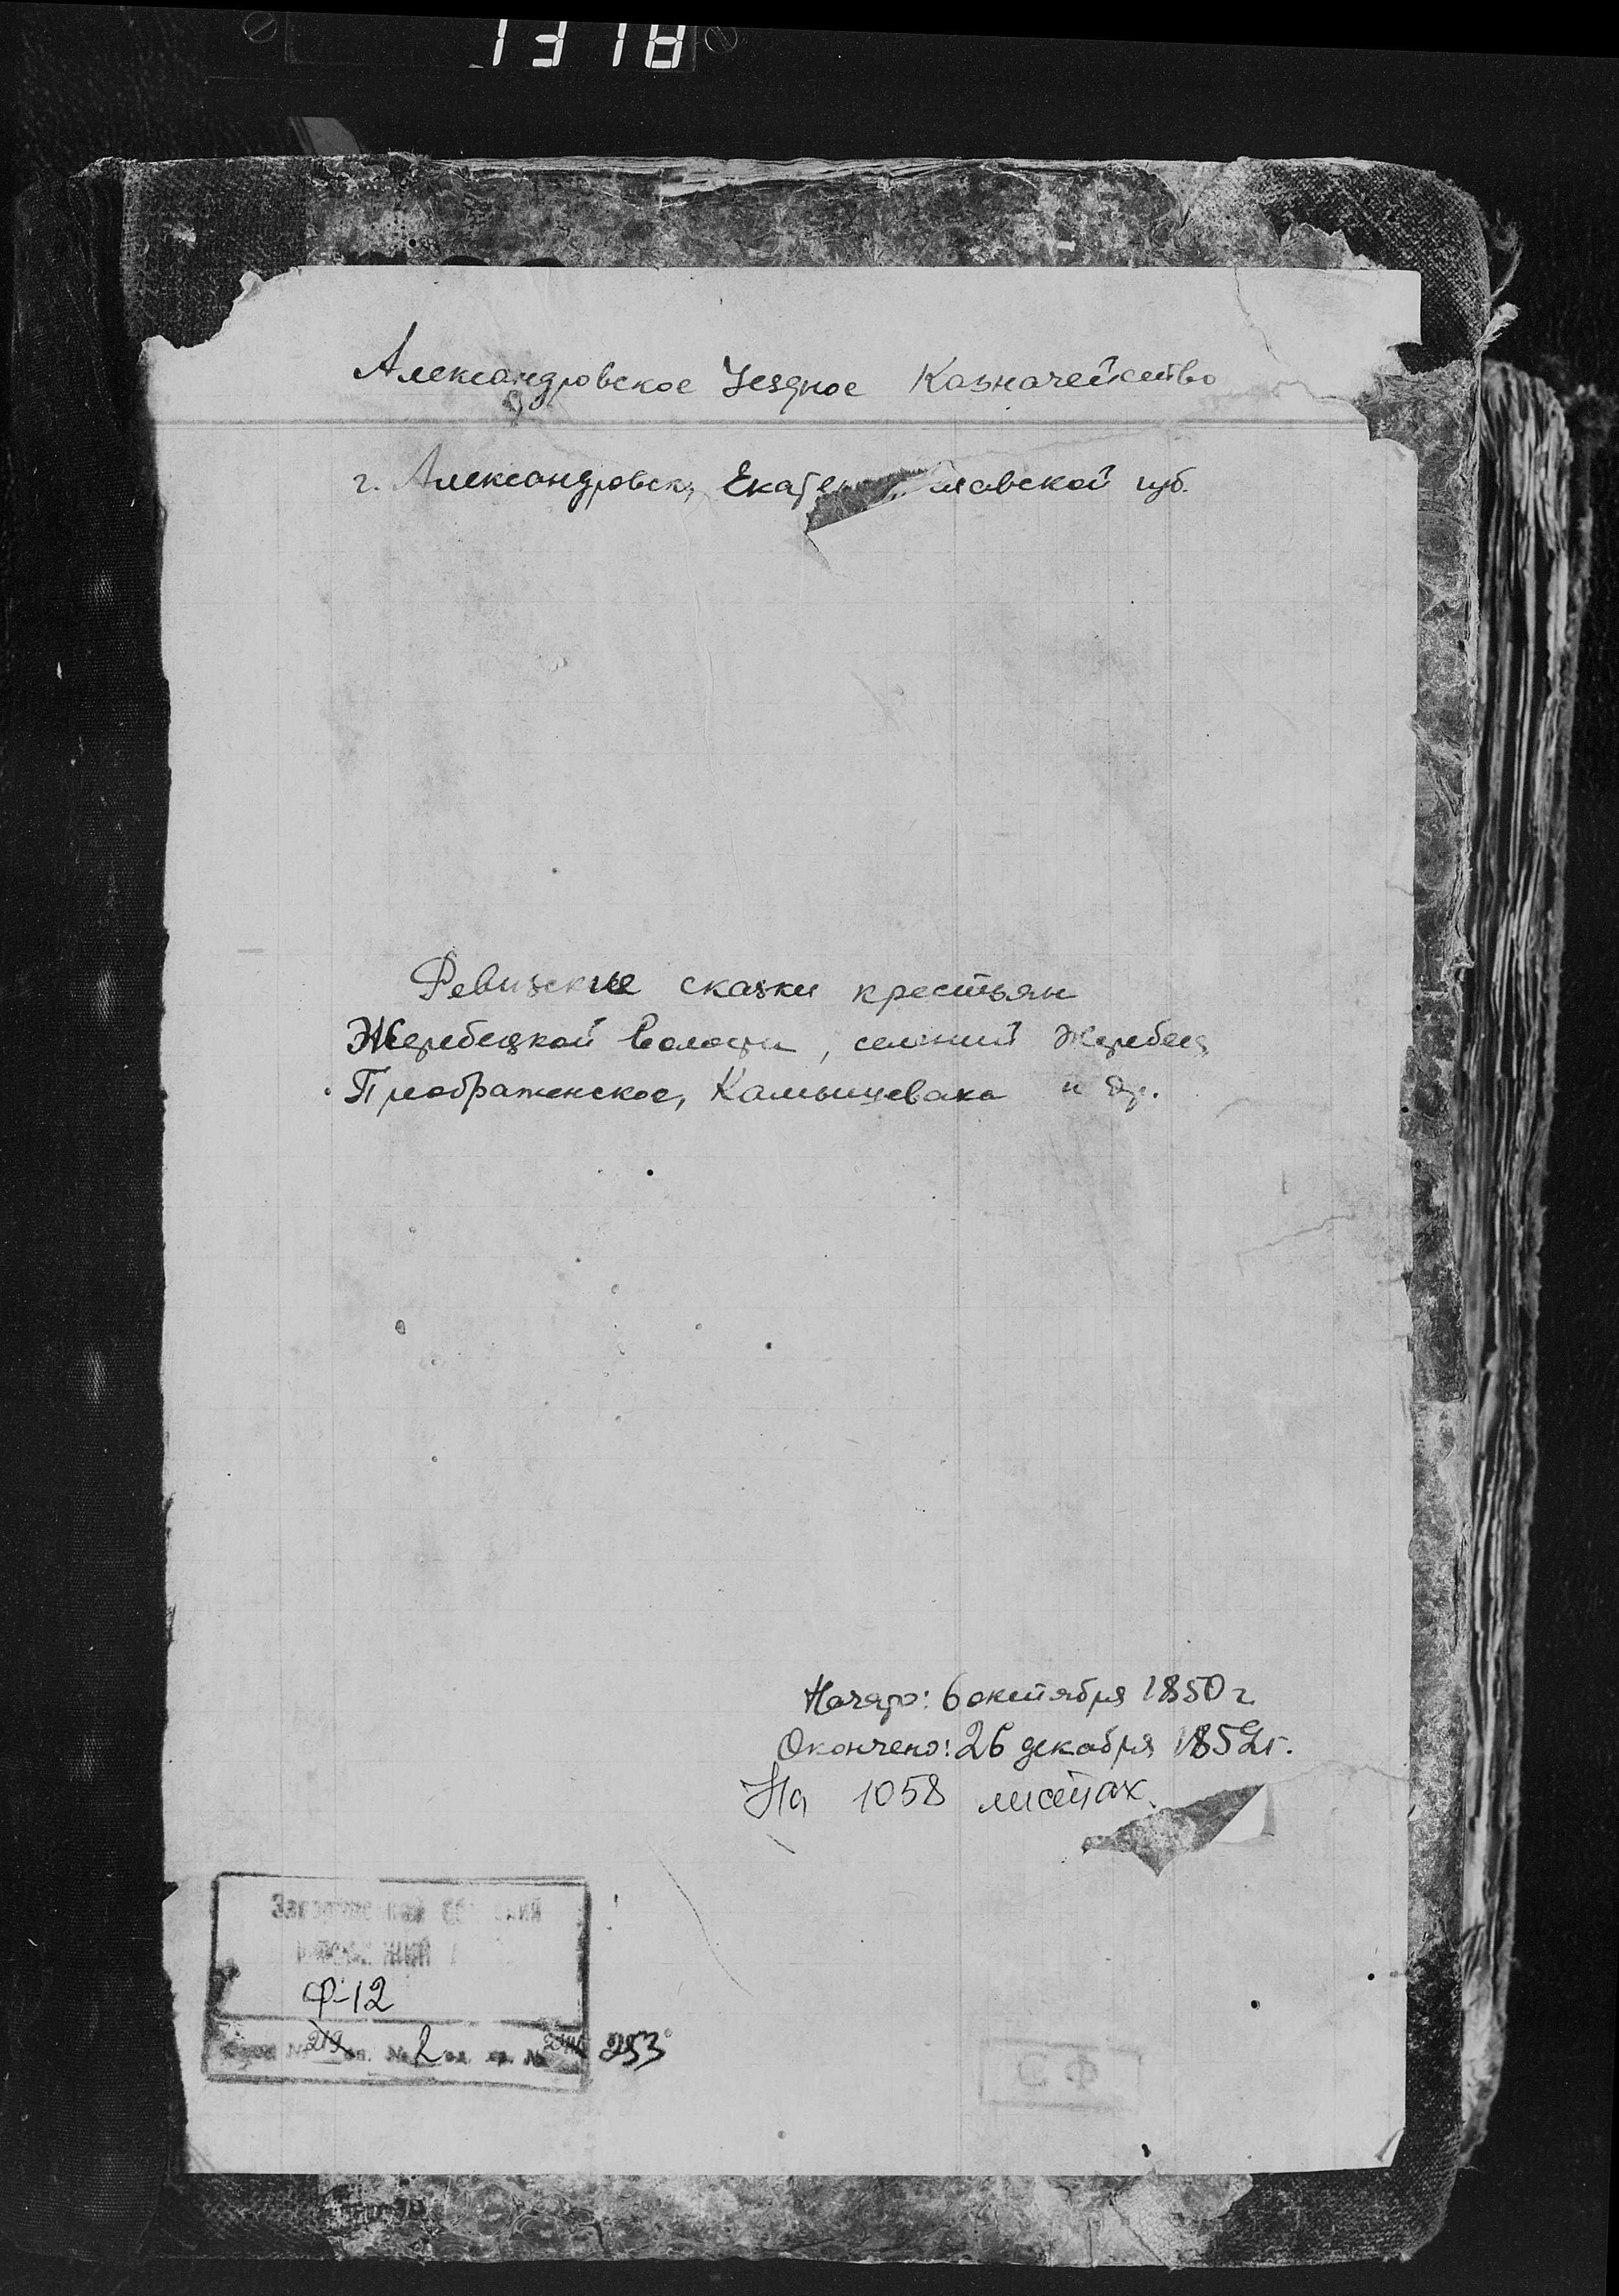 1318
Александровское Уездное Казначейство
г. Александровск, Екате лавской губ.
Ревизские сказки крестьян
Жеребецкой волости, селений Жеребец,
Преображенское, Камышеваха и др.
Начато: 6 октября 1850 г.
Окончено: 26 декабря 1852 г.
На 1058 листах.
Ф-12
212 оп. № 2 ед. хр. №
253
СФ